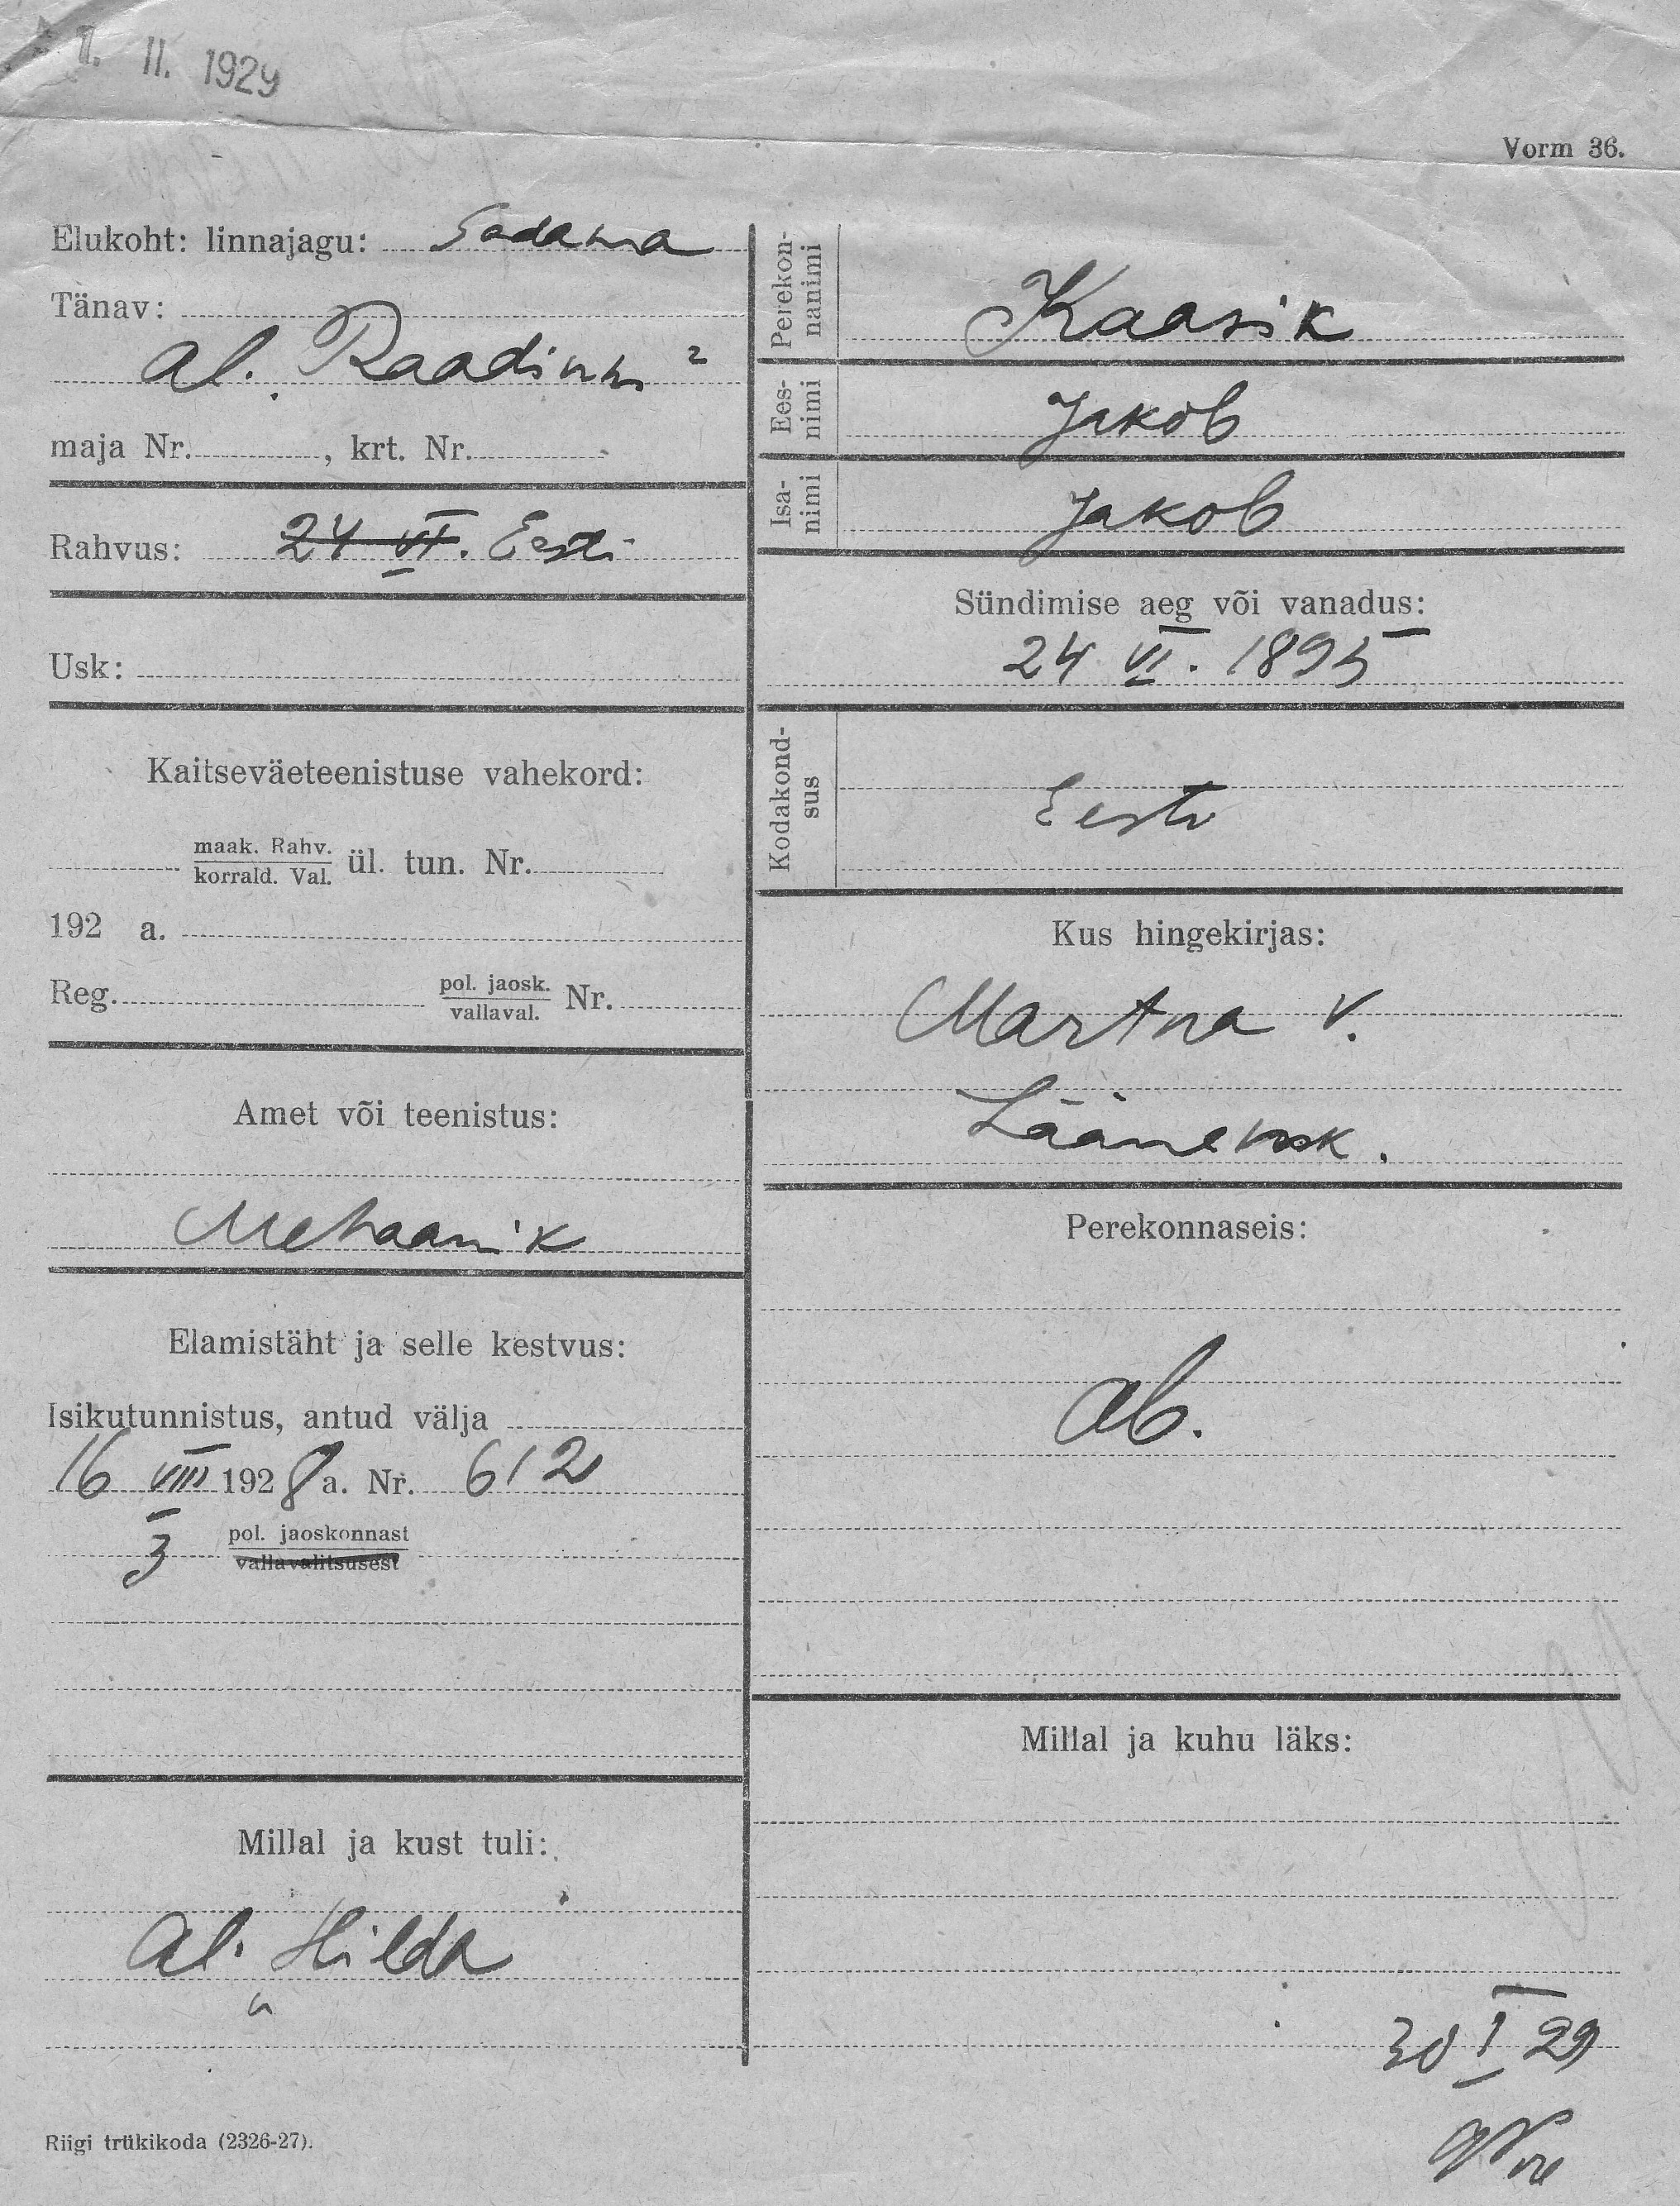 1. II. 1929
Vorm 36.
Elukoht: linnajagu: Sadama
Tänav:
al.
maja Nr. , krt. Nr.
Rahvus: 24 VI. Eesti
Usk:
Kaitseväeteenistuse vahekord:
maak. Rahv.
korrald. Val. ül. tun. Nr.
192 a.
Reg. pol. jaosk.
vallaval. Nr.
Amet või teenistus:
Mehaanik
Elamistäht ja selle kestvus:
Isikutunnistus, antud välja
16 VIII 1928 a. Nr. 612
3 pol. jaoskonnast
vallavalitsusest
Millal ja kust tuli:
al. Hilda
Riigi trükikoda (2326-27).
Perekon-
nanimi
Kaasik
Ees-
nimi
Jakob
Isa-
nimi
Jakob
Sündimise aeg või vanadus:
24 VI. 1895
Kodakond-
sus
Eesti
Kus hingekirjas:
Martna v.
Lääne
Perekonnaseis:
ab.
Millal ja kuhu läks:
30 I 29